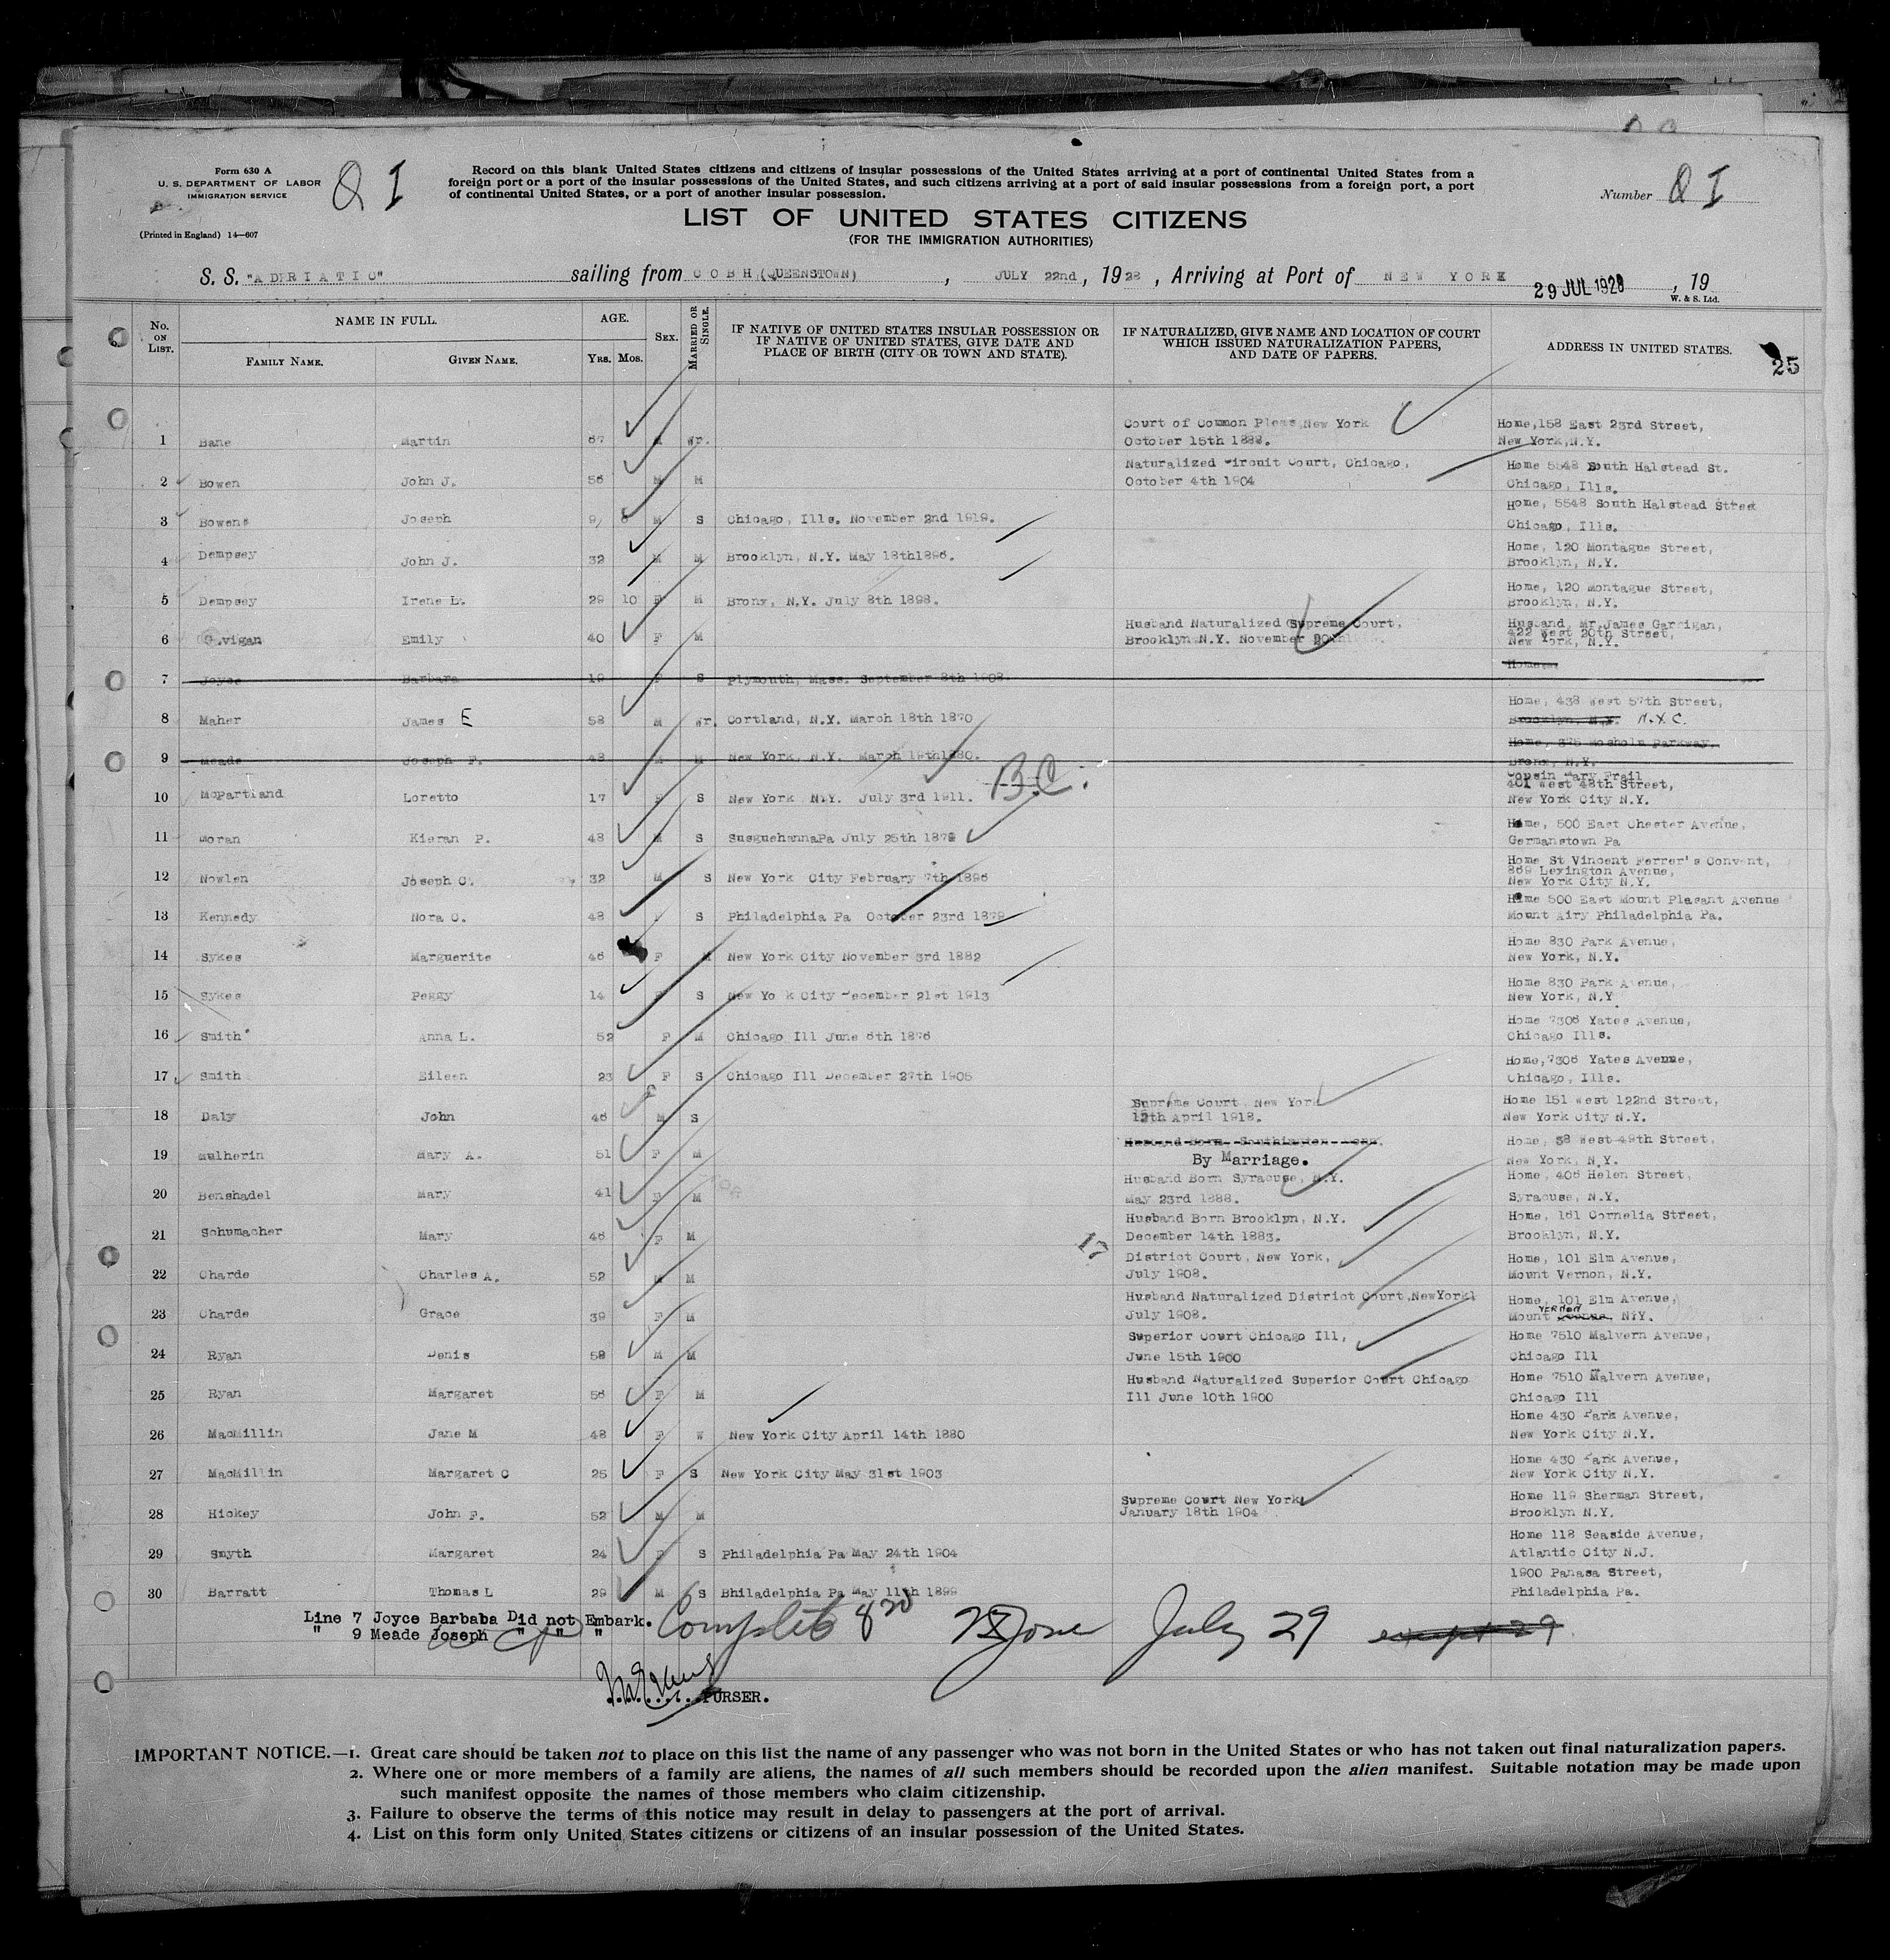 Form 630 A
U. S. DEPARTMENT OF LABOR
IMMIGRATION SERVICE
(Printed in England) 14—607
Q I
Record on this blank United States citizens and citizens of insular possessions of the United States arriving at a port of continental United States from a
foreign port or a port of the insular possessions of the United States, and such citizens arriving at a port of said insular possessions from a foreign port, a port
of continental United States, or a port of another insular possession.
Number Q I
LIST OF UNITED STATES CITIZENS
(FOR THE IMMIGRATION AUTHORITIES)
S. S. "ADRIATIC" sailing from COBH (QUEENSTOWN), JULY 22nd, 1928, Arriving at Port of NEW YORK 29 JUL 1928, 19
W. & S. Ltd.
No. ON LIST. NAME IN FULL. AGE. SEX. MARRIED OR SINGLE. IF NATIVE OF UNITED STATES INSULAR POSSESSION OR IF NATIVE OF UNITED STATES, GIVE DATE AND PLACE OF BIRTH (CITY OR TOWN AND STATE). IF NATURALIZED, GIVE NAME AND LOCATION OF COURT WHICH ISSUED NATURALIZATION PAPERS, AND DATE OF PAPERS. ADDRESS IN UNITED STATES.
FAMILY NAME. GIVEN NAME. YRS. MOS.
25
1 Bane Martin 67 M Wr. Court of Common Pleas New York October 15th 1888. Home, 158 East 23rd Street, New York, N.Y.
2 Bowen John J. 56 M M Naturalized Circuit Court, Chicago, October 4th 1904 Home 5548 South Halstead St. Chicago, Ills.
3 Bowens Joseph 9 M S Chicago, Ills. November 2nd 1919. Home, 5548 South Halstead Street Chicago, Ills.
4 Dempsey John J. 32 M M Brooklyn, N.Y. May 18th1896. Home, 120 Montague Street, Brooklyn, N.Y.
5 Dempsey Irene L. 29 10 F M Bronx, N.Y. July 8th 1898. Home, 120 Montague Street, Brooklyn, N.Y.
6 Emily 40 F M Husband Naturalized Supreme Court, Brooklyn N.Y. November Husband, Mr. James Garrigan, 422 West 20th Street, New York, N.Y.
7 Joyce Barbara 19 F S Plymouth, Mass. September 8th 1908. Home
8 Maher James E 58 M Wr. Cortland, N.Y. March 18th 1870 Home, 438 West 57th Street, Brooklyn, N.Y. N.Y.C.
9 Meade Joseph F. 48 M M New York, N.Y. March 19th1880. Home, 375 Mosholu Parkway, Bronx, N.Y.
10 McPartland Loretto 17 F S New York N.Y. July 3rd 1911. B.C. Cousin Mary Frail 401 West 48th Street, New York City N.Y.
11 Moran Kieran P. 48 M S SusguehannaPa July 25th 1879 Home, 500 East Chester Avenue, Germanstown Pa
12 Nowlen Joseph C. 32 M S New York City February 7th 1896 Home St Vincent Ferrer's Convent, 869 Lexington Avenue, New York City N.Y.
13 Kennedy Nora C. 48 S Philadelphia Pa October 23rd 1879 Home 500 East Mount Plesant Avenue Mount Airy Philadelphia Pa.
14 Sykes Marguerite 46 F M New York City November 3rd 1882 Home 830 Park Avenue, New York, N.Y.
15 Sykes Peggy 14 F S New Yo k City December 21st 1913 Home 830 Park Avenue, New York, N.Y
16 Smith Anna L. 52 F M Chicago Ill June 6th 1876 Home 7306 Yates Avenue, Chicago Ills.
17 Smith Eileen 23 F S Chicago Ill December 27th 1905 Home, 7306 Yates Avenue, Chicago, Ills.
18 Daly John 46 M S Supreme Court New York 12th April 1918. Home 151 West 122nd Street, New York City N.Y.
19 Mulherin Mary A. 51 F M Husband Born Southington Conn. By Marriage. Home, 58 West 49th Street, New York, N.Y.
20 Benshadel Mary 41 F M Husband Born Syracuse, N.Y. May 23rd 1888. Home, 406 Helen Street, Syracuse, N.Y.
21 Schumacher Mary 46 F M Husband Born Brooklyn, N.Y. December 14th 1883. Home, 161 Cornelia Street, Brooklyn, N.Y.
17
22 Charde Charles A. 52 M M District Court, New York, July 1908. Home, 101 Elm Avenue, Mount Vernon, N.Y.
23 Charde Grace 39 F M Husband Naturalized District Court, NewYork July 1908. Home, 101 Elm Avenue, Mount VERNON N.Y.
24 Ryan Denis 58 M M Superior Court Chicago Ill, June 15th 1900 Home 7510 Malvern Avenue, Chicago Ill
25 Ryan Margaret 56 F M Husband Naturalized Superior Court Chicago Ill June 10th 1900 Home 7510 Malvern Avenue, Chicago Ill
26 MacMillin Jane M 48 F W New York City April 14th 1880 Home 430 Park Avenue, New York City N.Y.
27 MacMillin Margaret C 25 F S New York City May 31st 1903 Home 430 Park Avenue, New York City N.Y.
28 Hickey John F. 52 M M Supreme Court New York January 18th 1904 Home 119 Sherman Street, Brooklyn N.Y.
29 Smyth Margaret 24 F S Philadelphia Pa May 24th 1904 Home 118 Seaside Avenue, Atlantic City N.J.
30 Barratt Thomas L 29 M S Bhiladelphia Pa May 11th 1899 1900 Panasa Street, Philadelphia Pa.
Line 7 Joyce Barbaba Did not Embark.
" 9 Meade Joseph " " "
Complete 8 30 July 29 except 29
PURSER.
IMPORTANT NOTICE.—1. Great care should be taken not to place on this list the name of any passenger who was not born in the United States or who has not taken out final naturalization papers.
2. Where one or more members of a family are aliens, the names of all such members should be recorded upon the alien manifest. Suitable notation may be made upon
such manifest opposite the names of those members who claim citizenship.
3. Failure to observe the terms of this notice may result in delay to passengers at the port of arrival.
4. List on this form only United States citizens or citizens of an insular possession of the United States.